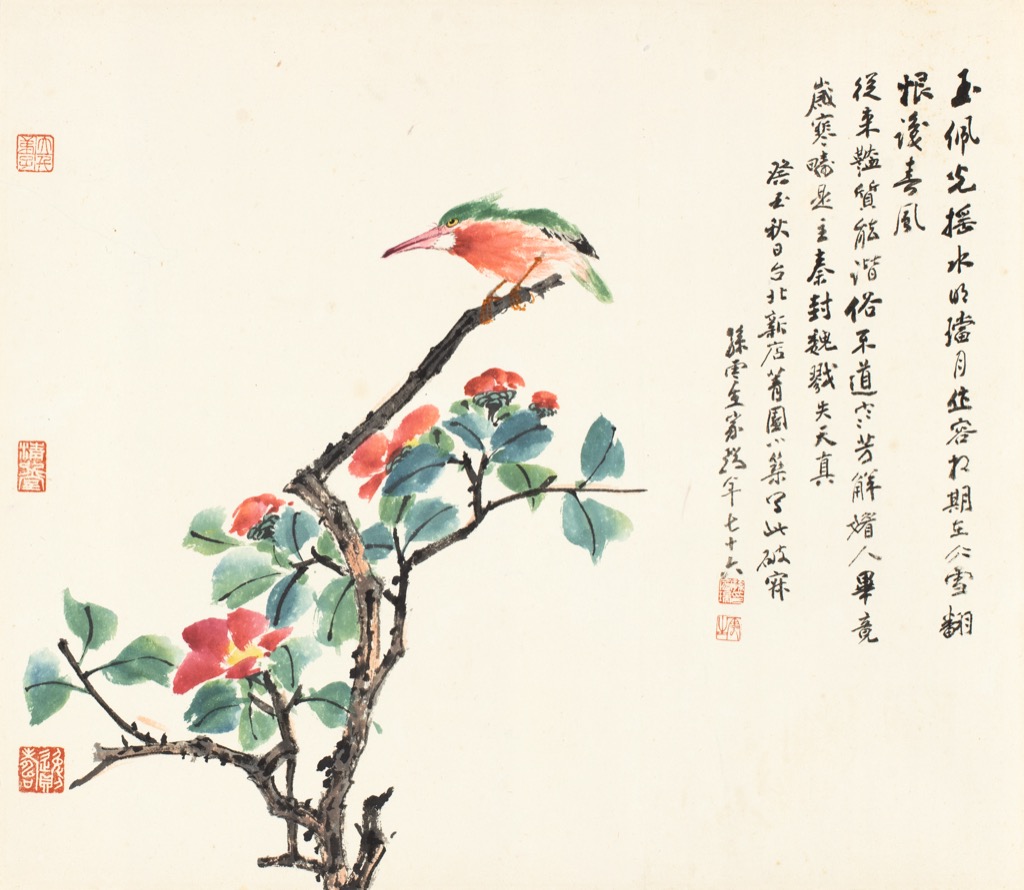 玉佩光搖水明璫月作容相期在冰雪翻
恨識春風
從來豔質能諧俗不道寒芳解媚人畢竟
歲寒疇是主秦封魏戮失天真
癸酉秋日台北新店菁園小築寫此破寂
孫雲生家瑞年七十六